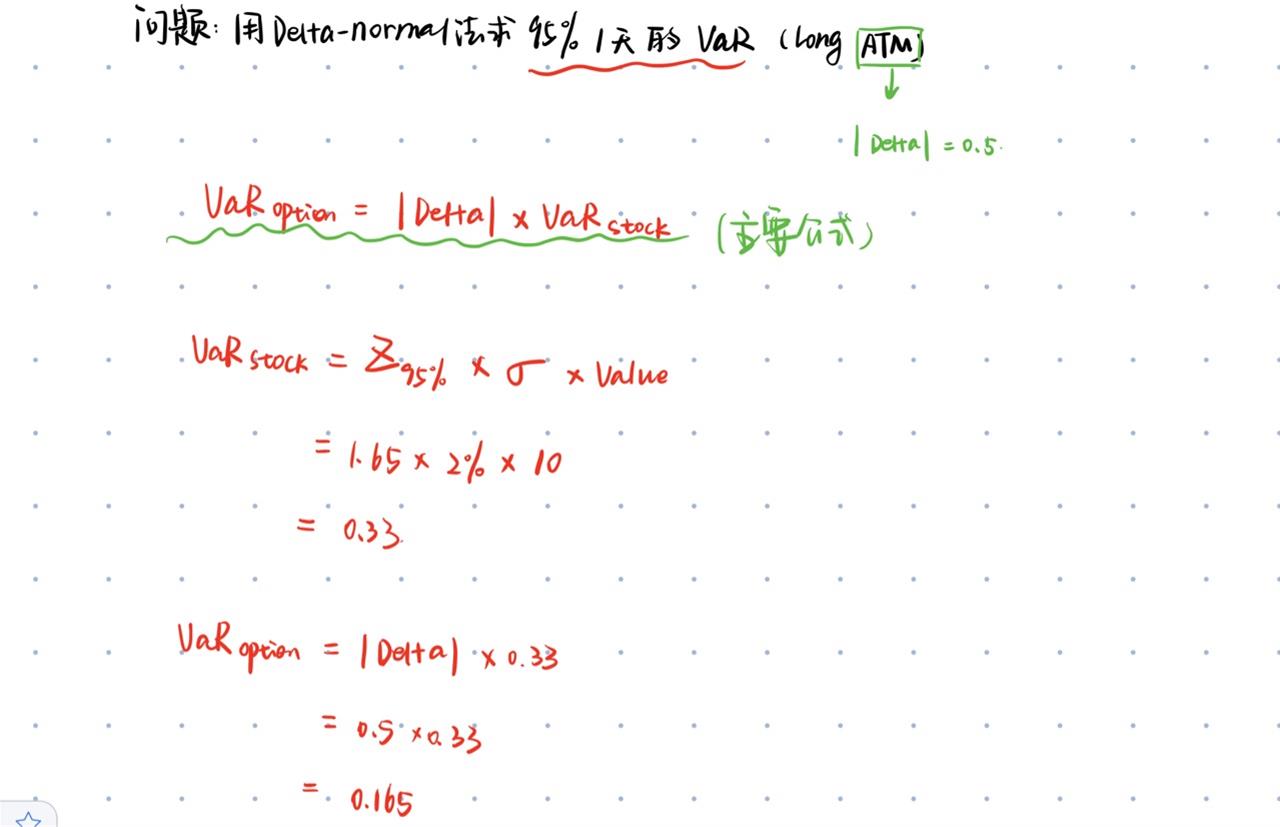 问题: 用Delta-normal法求 95% 1天的 VaR (Long ATM)
|Delta| = 0.5.
VaR option = |Delta| × VaR stock (主要公式)
VaR stock = Z95% × σ × Value
= 1.65 × 2% × 10
= 0.33
VaR option = |Delta| × 0.33
= 0.5 × 0.33
= 0.165